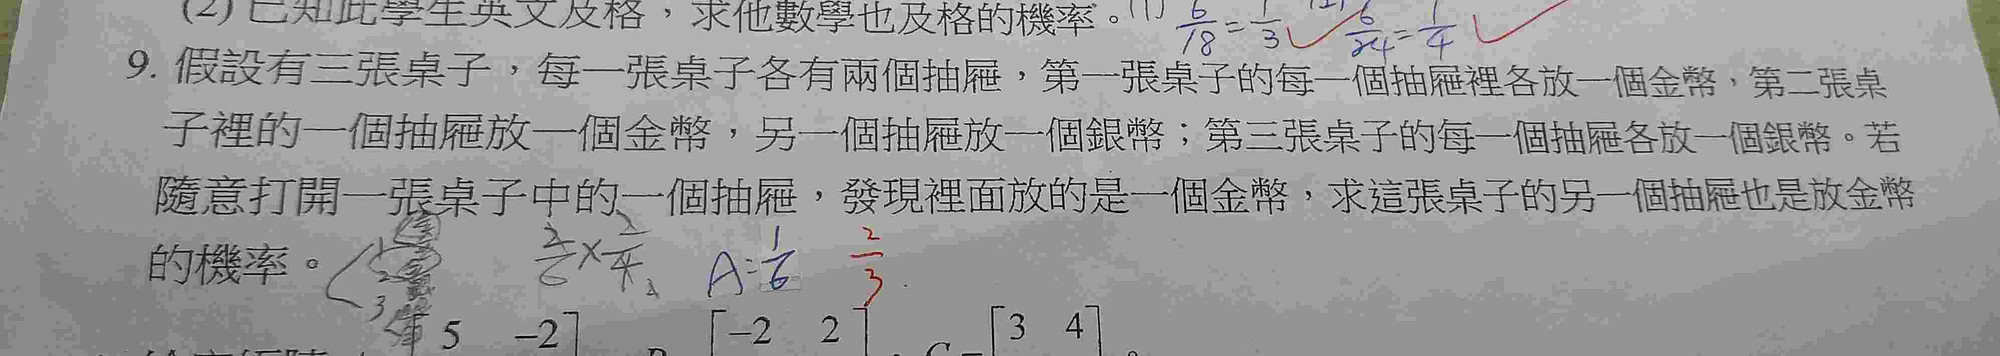 (2) 已知此學生英文及格，求他數學也及格的機率。(1) 6/18=1/3 (2) 6/24=1/4
9. 假設有三張桌子，每一張桌子各有兩個抽屜，第一張桌子的每一個抽屜裡各放一個金幣，第二張桌
子裡的一個抽屜放一個金幣，另一個抽屜放一個銀幣；第三張桌子的每一個抽屜各放一個銀幣。若
隨意打開一張桌子中的一個抽屜，發現裡面放的是一個金幣，求這張桌子的另一個抽屜也是放金幣
的機率。 A=1/6 2/3
1
2
3
5 -2] [-2 2] [3 4]